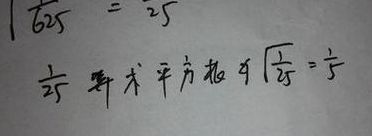 √1/625 = 1/25
1/25 算术平方根为 √1/25 = 1/5